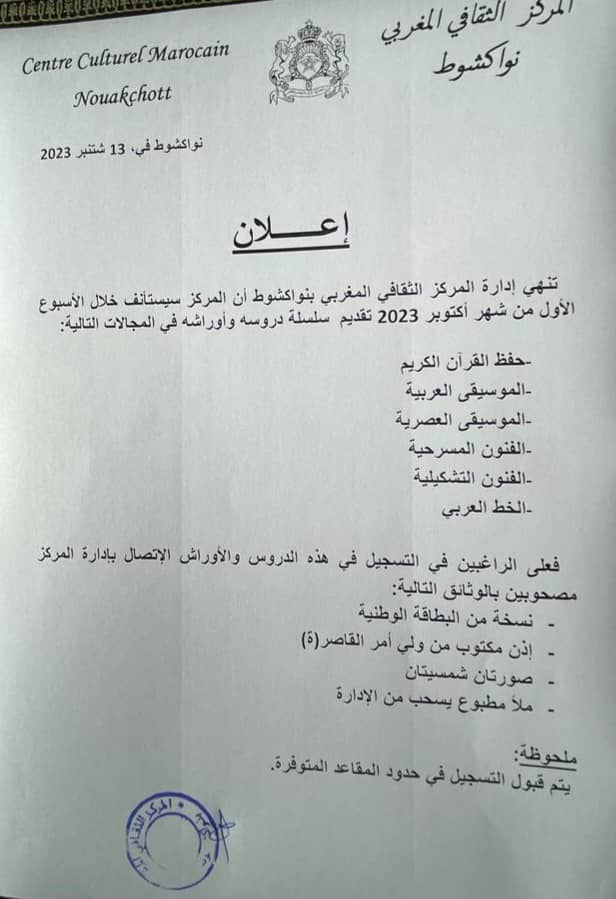 Centre Culturel Marocain
Nouakchott
المركز الثقافي المغربي
نواكشوط
نواكشوط في، 13 شتنبر 2023
إعــــلان
تنهي إدارة المركز الثقافي المغربي بنواكشوط أن المركز سيستأنف خلال الأسبوع
الأول من شهر أكتوبر 2023 تقديم سلسلة دروسه وأوراشه في المجالات التالية:
-حفظ القرآن الكريم
-الموسيقى العربية
-الموسيقى العصرية
-الفنون المسرحية
-الفنون التشكيلية
-الخط العربي
فعلى الراغبين في التسجيل في هذه الدروس والأوراش الإتصال بإدارة المركز
مصحوبين بالوثائق التالية:
- نسخة من البطاقة الوطنية
- إذن مكتوب من ولي أمر القاصر(ة)
- صورتان شمسيتان
- ملأ مطبوع يسحب من الإدارة
ملحوظة:
يتم قبول التسجيل في حدود المقاعد المتوفرة.
المركز الثقافي